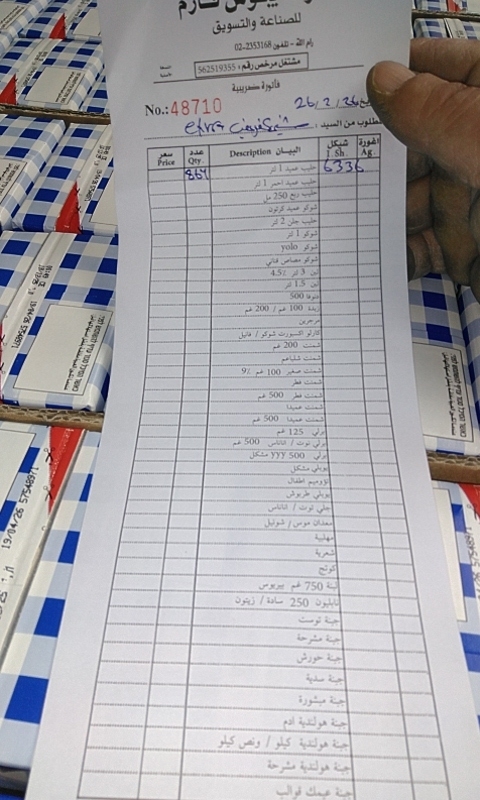 للصناعة والتسويق
رام الله - تلفون 2353168-02
مشتغل مرخص رقم: 562519355
فاتورة ضريبية
No.: 48710
26/2/26
مطلوب من السيد: extra
سعر Price عدد Qty. البيـــان Description شيكل I. Sh. اغورة Ag.
حليب عميد 1 لتر 6336
حليب عميد احمر 1 لتر
حليب ربع 250 مل
شوكو عميد كرتون
حليب جلن 2 لتر
شوكو 1 لتر
شوكو yolo
شوكو مصاص فناني
لبن 3 لتر 4.5٪
لبن 1.5 لتر
500
زبدة 100 غم / 200 غم
مرجرين
كارلو اكسبورت شوكو / فانيل
شمنت 200 غم
شمنت شلباهم
شمنت صغير 100 غم 9٪
شمنت فطر
شمنت فطر 500 غم
شمنت عميدا
شمنت عميدا 500 غم
برلي 125 غم
برلي توت / اناناس 500 غم
برلي 500 yyy مشكل
يوبلي مشكل
اطفال
يوبلي طربوش
جلي توت / اناناس
معدان موس / شوتيل
مهلبية
شعرية
كوتج
لبنة 750 غم بيريوس
نابليون 250 سادة / زيتون
جبنة توست
جبنة مشرحة
جبنة حورش
جبنة سدية
جبنة مبشورة
جبنة هولندية ادم
جبنة هولندية كيلو / ونص كيلو
جبنة هولندية مشرحة
جبنة عيمك قوالب
19/04/26 57548971